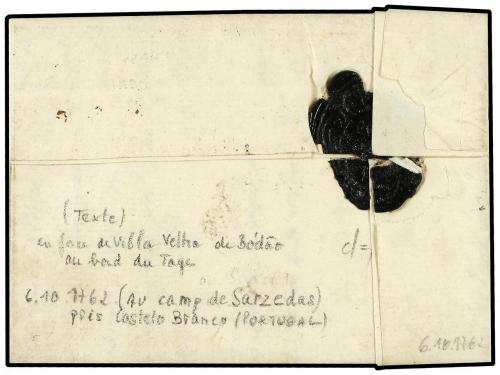 (Texte)
en face de Villa Velha de Bódão
au bord du Tage
cl=
6.10.1762 (Au camp de Sarzedas)
près Castelo Branco (PORTUGAL)
6.10.1762